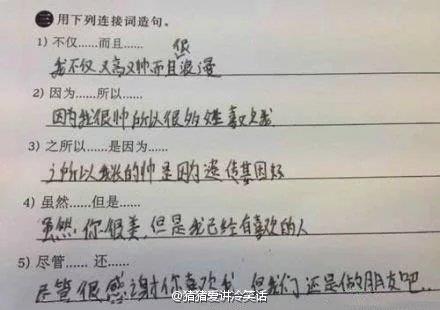 三 用下列连接词造句。
1) 不仅……而且……
我不仅又高又帅而且很浪漫
2) 因为……所以……
因为我很帅所以很多女生喜欢我
3) 之所以……是因为……
之所以我长的帅是因为遗传基因好
4) 虽然……但是……
虽然你很美,但是我已经有喜欢的人
5) 尽管…… 还……
尽管很感谢你喜欢我,但我们还是做朋友吧..
@猪猪爱讲冷笑话